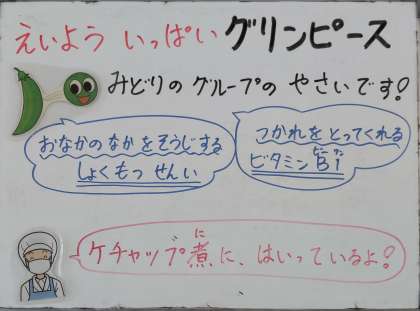 えいよう いっぱい グリンピース
みどりの グループの やさいです!
おなかのなかをそうじする
しょくもつ せんい
つかれを とってくれる
ビタミンB1
ケチャップ煮に、はいっているよ!